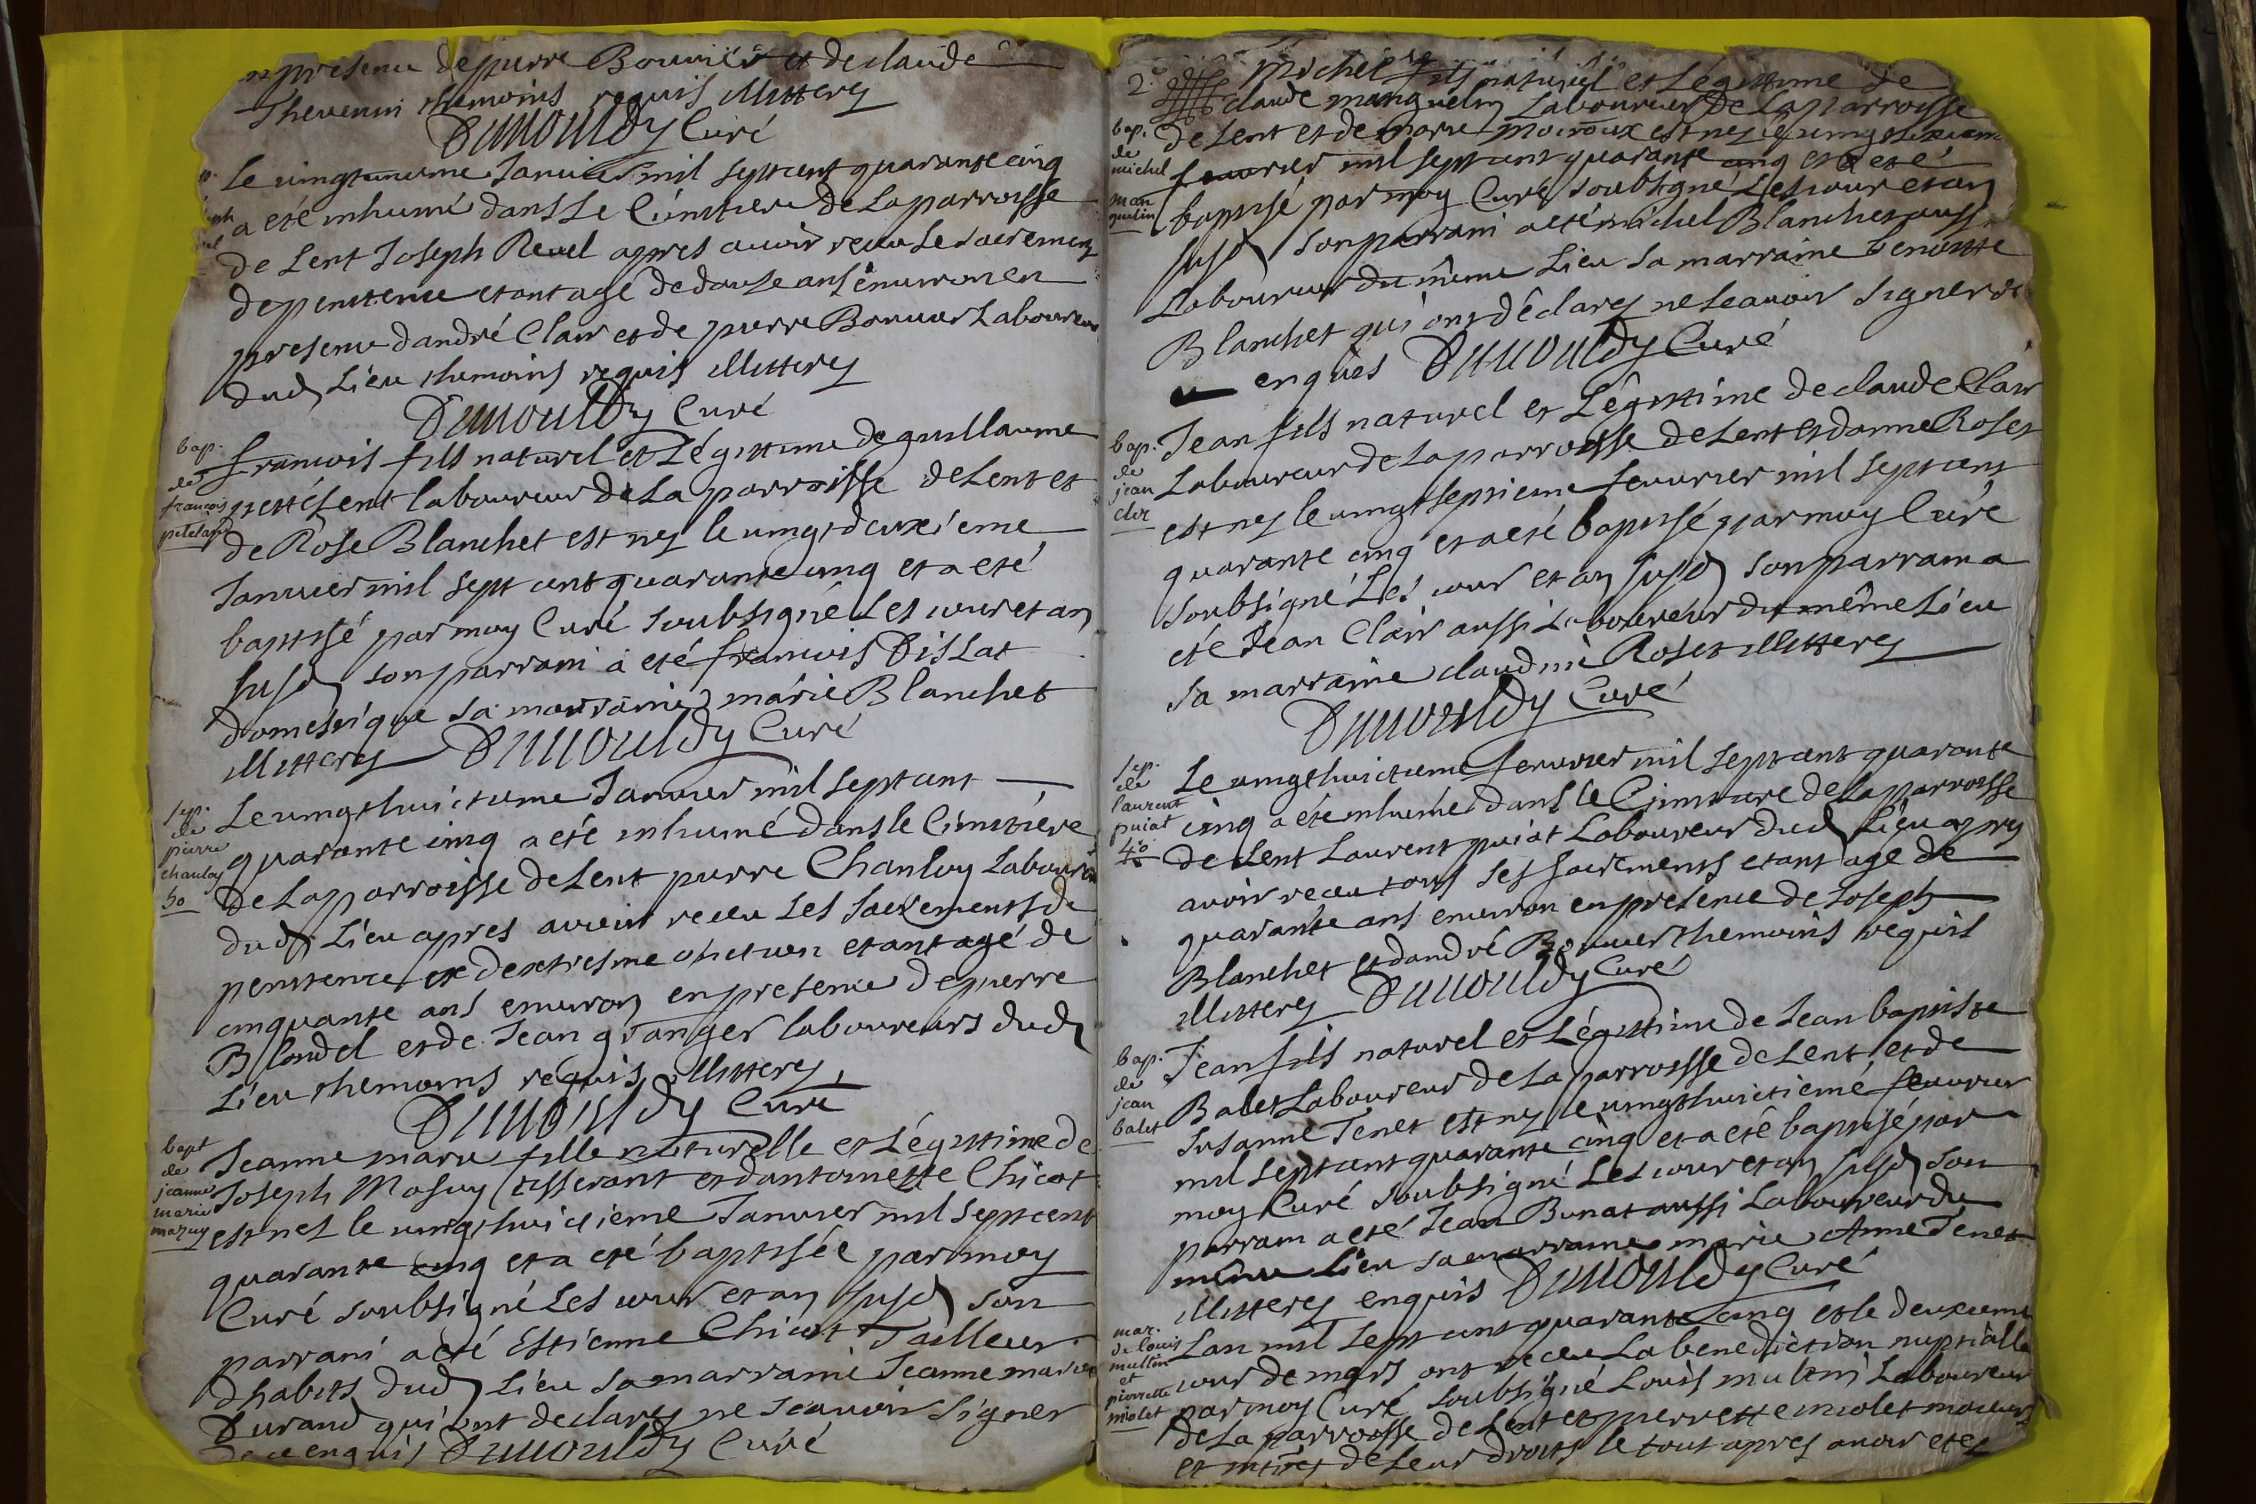 en presence de pierre Bouvier et de claude
Thevenin themoins requis illitterez
Dumouldy Curé
Le vingtunieme Janvier mil septcent quarante cinq
a eté inhumé dans Le Cimitiere de La parroisse
de Lent Joseph Revel apres avoir receu Le sacrement
de penitence etant agé de douze ans environ en
presence dandré Clair et de pierre Bouvier Laboureurs
dud Lieu themoins requis illitterez
Dumouldy Curé
bap.
de
francois
petetant
francois fils naturel et Légittime de guillaume
petetent laboureur de La parroisse de Lent et
de Rose Blanchet est nez le vingtdeuxieme
Janvier mil sept cent quarante cinq et a eté
baptisé par moy Curé soubsigné Les jour et an
susd son parrain a eté francois Dislat
domestique sa marraine marie Blanchet
illitterez Dumouldy Curé
sep.
de
pierre
chanluy
50
Le vingthuictieme Janvier mil septcent
quarante cinq a eté inhumé dans le Cimitière
de La parroisse de Lent pierre Chanluy Laboureur
dud Lieu apres avoir receu Les sacrements de
penitence et dextresme onction etant agé de
cinquante ans environ en presence de pierre
Blondel et de Jean granger laboureurs dud
Lieu themoins requis illitterez
Dumouldy Curé
bapt
de
jeanne
marie
mazuy
Jeanne marie fille naturelle et Légittime de
Joseph Masuy tisserant et dantoinette Chicot
est nez le vingthuictieme Janvier mil septcent
quarante cinq et a eté baptisée par moy
Curé soubsigné Les jour et an susd son
parrain a eté Estienne Chicot Tailleur
dhabits dud Lieu sa marraine Jeanne marie
Durand qui ont declarez ne scavoir signer
de ce enquis Dumouldy Curé
2e
bap.
de
michel
man
guelin
Michel fils naturel et Légittime de
claude manguelin Laboureur de La parroisse
de Lent et de marie moiroux est nez le vingt
fevvrier mil septcent quarante cinq et a eté
baptisé par moy Curé soubsigné Les jour et an
susd son parrain a eté michel Blanchet aussi
Laboureur du même Lieu sa marraine benoitte
Blanchet qui ont déclarez ne scavoir signer de
ce enquis Dumouldy Curé
bap.
de
jean
cler
Jean fils naturel et Légittime de claude Clair
Laboureur de La parroisse de Lent et danne Roset
est nez le vingtseptieme fevvrier mil septcent
quarante cinq et a eté baptisé par moy Curé
soubsigné Les jour et an susd son parrain a
eté Jean Clair aussi Laboureur du même Lieu
sa marraine claudine Roset illitterez
Dumouldy Curé
sep.
de
laurent
puiat
40
Le vingthuictieme fevvrier mil septcent quarante
cinq a eté inhumé dans le Cimitiere de La parroisse
de Lent Laurent puiat Laboureur dud Lieu apres
avoir receu tous ses sacrements etant agé de
quarante ans environ en presence de Joseph
Blanchet et dandré Bouvier themoins requis
illitterez Dumouldy Curé
bap.
de
jean
balet
Jean fils naturel et Légittime de Jean baptiste
Balet Laboureur de La parroisse de Lent et de
Susanne Tenet est nez le vingthuictieme fevvrier
mil septcent quarante cinq et a eté baptisé par
moy Curé soubsigné Les jour et an susd son
parrain a eté Jean Bunat aussi Laboureur du
même Lieu sa marraine marie Anne Tenet
illitterez enquis Dumouldy Curé
mar.
de louis
multin
et
pierrette
miolet
Lan mil septcent quarante cinq et le deuxieme
jour de mars ont receu La benediction nuptialle
par moy Curé soubsigné Louis multin Laboureur
de La parroisse de Lent et pierrette miolet
et de Leur droits le tout apres avoir etez